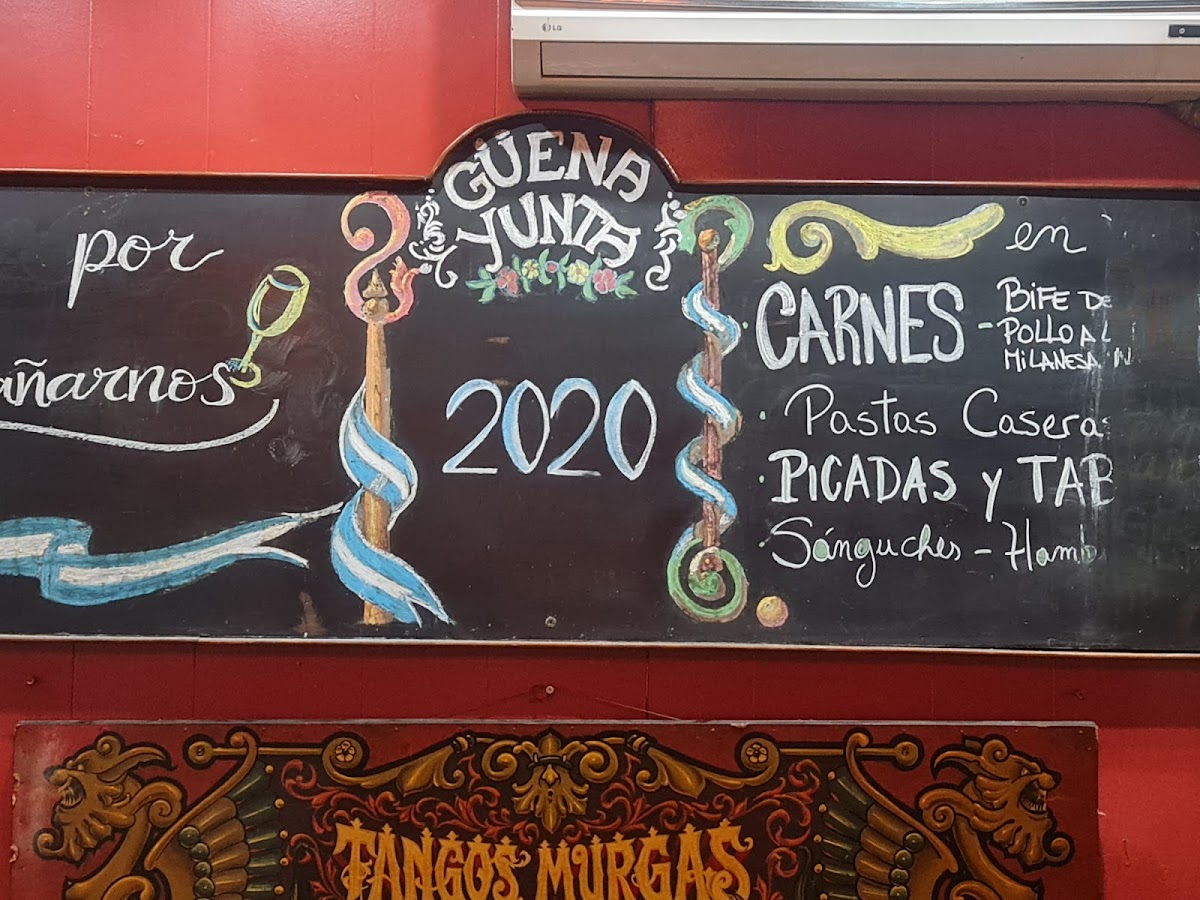 LG
GÜENA
YUNTA
2020
por
añarnos
en
CARNES -
BIFE DE
POLLO AL
MILANESA
Pastas Caseras
PICADAS y TAB
Sánguches - Hamb
TANGOS. MURGAS